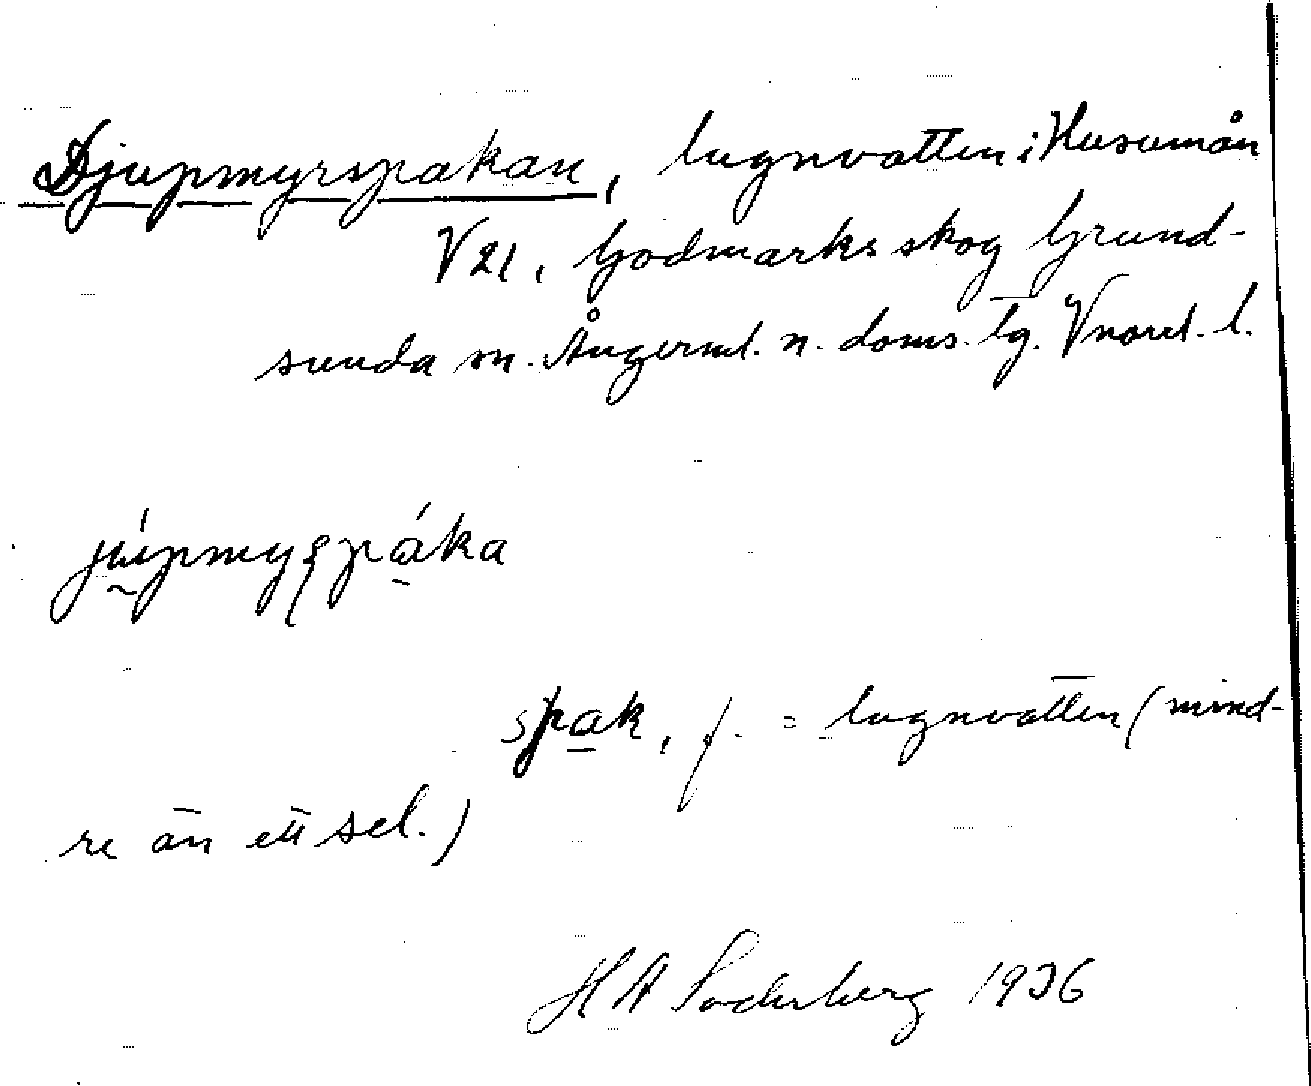 Djupmyrspakan, lugnvatten i Husumån
V 21, Godmarks skog Grund-
sunda sn. Ångerml. n. doms. lg. Vnorrl. l.
spak, f. = lugnvatten (mind-
re än ett sel.)
H A Söderberg 1936